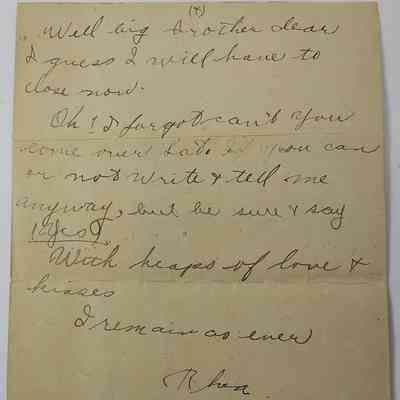 (4)
Well big brother dear
I guess I will have to
close now.
Oh! I forgot can't you
come over Sat. If you can
or not write & tell me
anyway, but be sure & say
"Yes"
With heaps of love &
kisses
I remain as ever
Rhea.